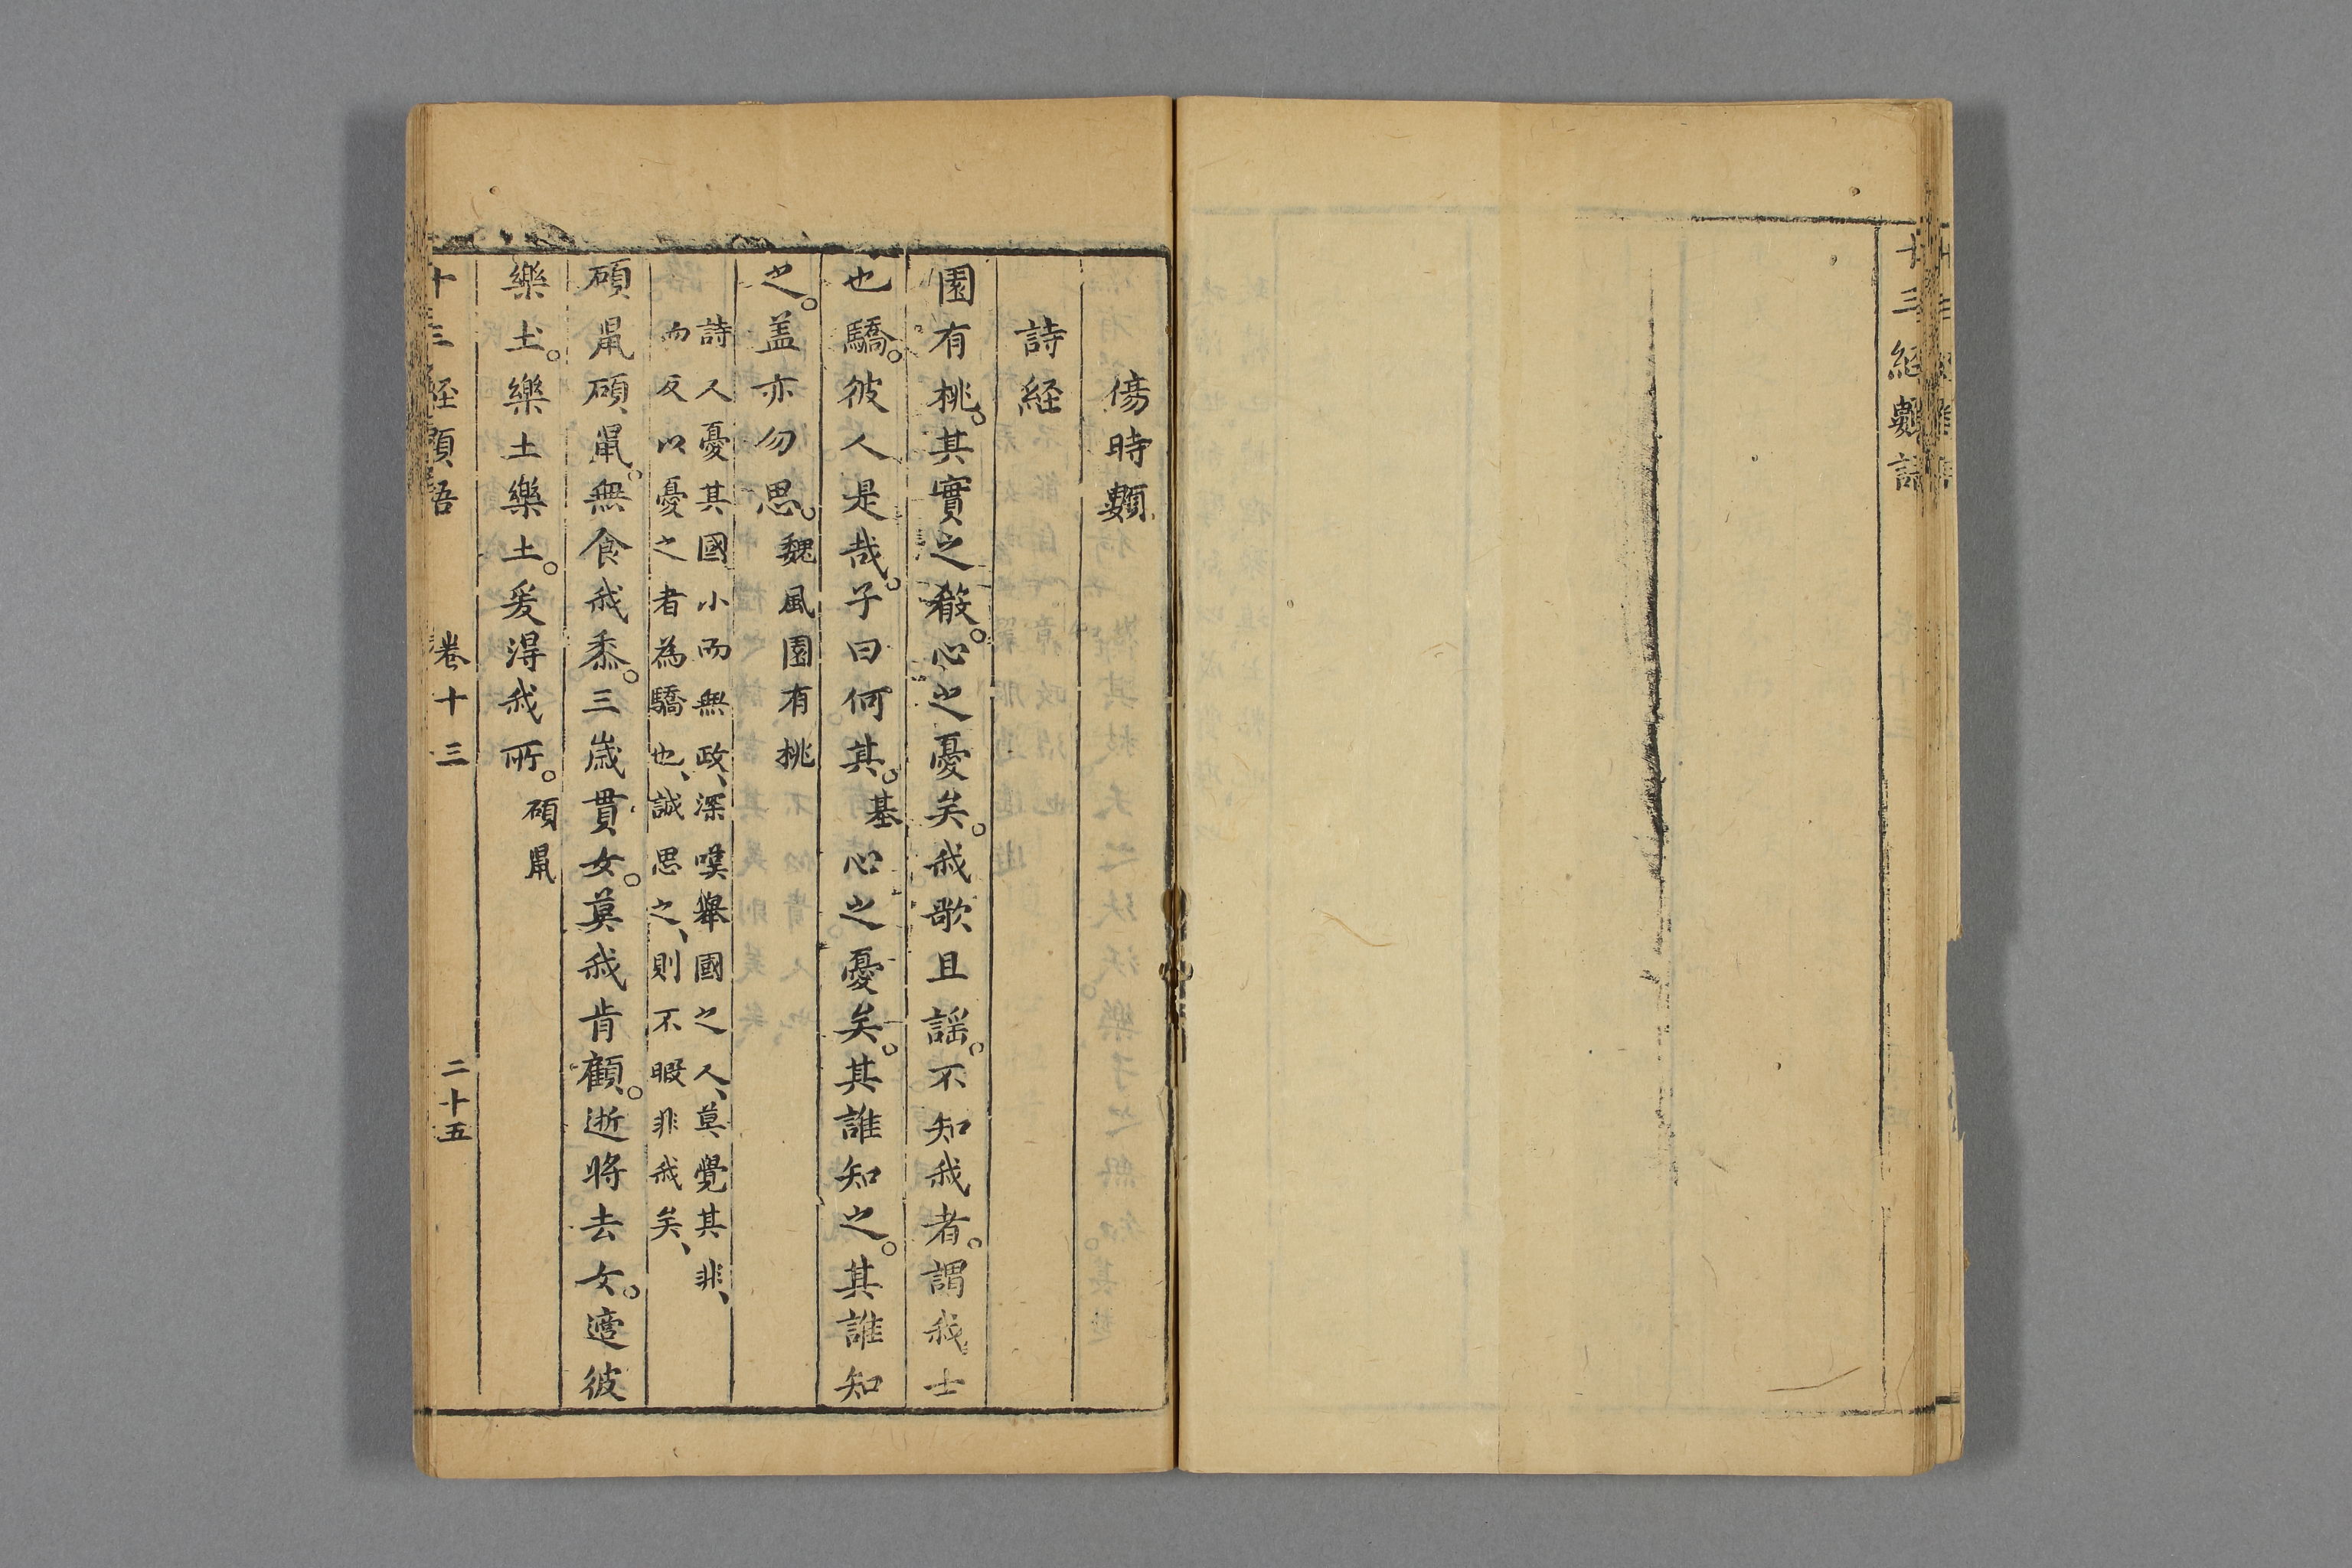 十三經類語
傷時類
詩経
園有桃。其實之殽。心之憂矣。我歌且謡。不知我者。謂我士
也驕。彼人是哉。子曰何其。基心之憂矣。其誰知之。其誰知
之。盖亦勿思。魏風園有桃
詩人憂其國小而無政、深嘆舉國之人、莫覺其非、
而反以憂之者為驕也、誠思之、則不暇非我矣、
碩鼠碩鼠。無食我黍。三歲貫女。莫我肯顧。逝將去女。適彼
樂土。樂土樂土。爰得我所。碩鼠
十三経類語 卷十三 二十五